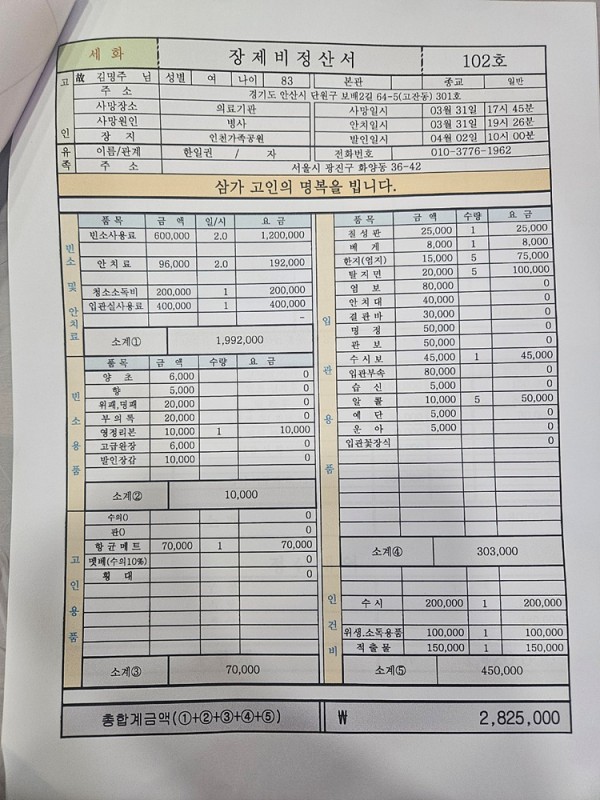 세화 장제비정산서 102호
고인 故 김명주 님 성별 여 나이 83 본관 종교 일반
주 소 경기도 안산시 단원구 보배2길 64-5(고잔동) 301호
사망장소 의료기관 사망일시 03월 31일 17시 45분
사망원인 병사 안치일시 03월 31일 19시 26분
장 지 인천가족공원 발인일시 04월 02일 10시 00분
유족 이름/관계 한일권 / 자 전화번호 010-3776-1962
주 소 서울시 광진구 화양동 36-42
삼가 고인의 명복을 빕니다.
빈소 및 안치료
품목 금 액 일/시 요 금
빈소사용료 600,000 2.0 1,200,000
안 치 료 96,000 2.0 192,000
청소소독비 200,000 1 200,000
입관실사용료 400,000 1 400,000
-
소계① 1,992,000
빈소용품
품목 금 액 수량 요 금
양 초 6,000 0
향 5,000 0
위패,명패 20,000 0
부 의 록 20,000 0
영정리본 10,000 1 10,000
고급완장 6,000 0
발인장갑 10,000 0
소계② 10,000
고인용품
수의() 0
관() 0
항균메트 70,000 1 70,000
멧베(수의10%) 0
횡 대 0
소계③ 70,000
입관용품
품 목 금 액 수량 요 금
칠성판 25,000 1 25,000
베 게 8,000 1 8,000
한지(염지) 15,000 5 75,000
탈 지 면 20,000 5 100,000
염 보 80,000 0
안 치 대 40,000 0
결 관 바 30,000 0
명 정 50,000 0
관 보 50,000 0
수 시 보 45,000 1 45,000
입관부속 80,000 0
습 신 5,000 0
알 콜 10,000 5 50,000
예 단 5,000 0
운 아 5,000 0
입관꽃장식 0
소계④ 303,000
인건비
수 시 200,000 1 200,000
위생.소독용품 100,000 1 100,000
적 출 물 150,000 1 150,000
소계⑤ 450,000
총합계금액(①+②+③+④+⑤) ₩ 2,825,000